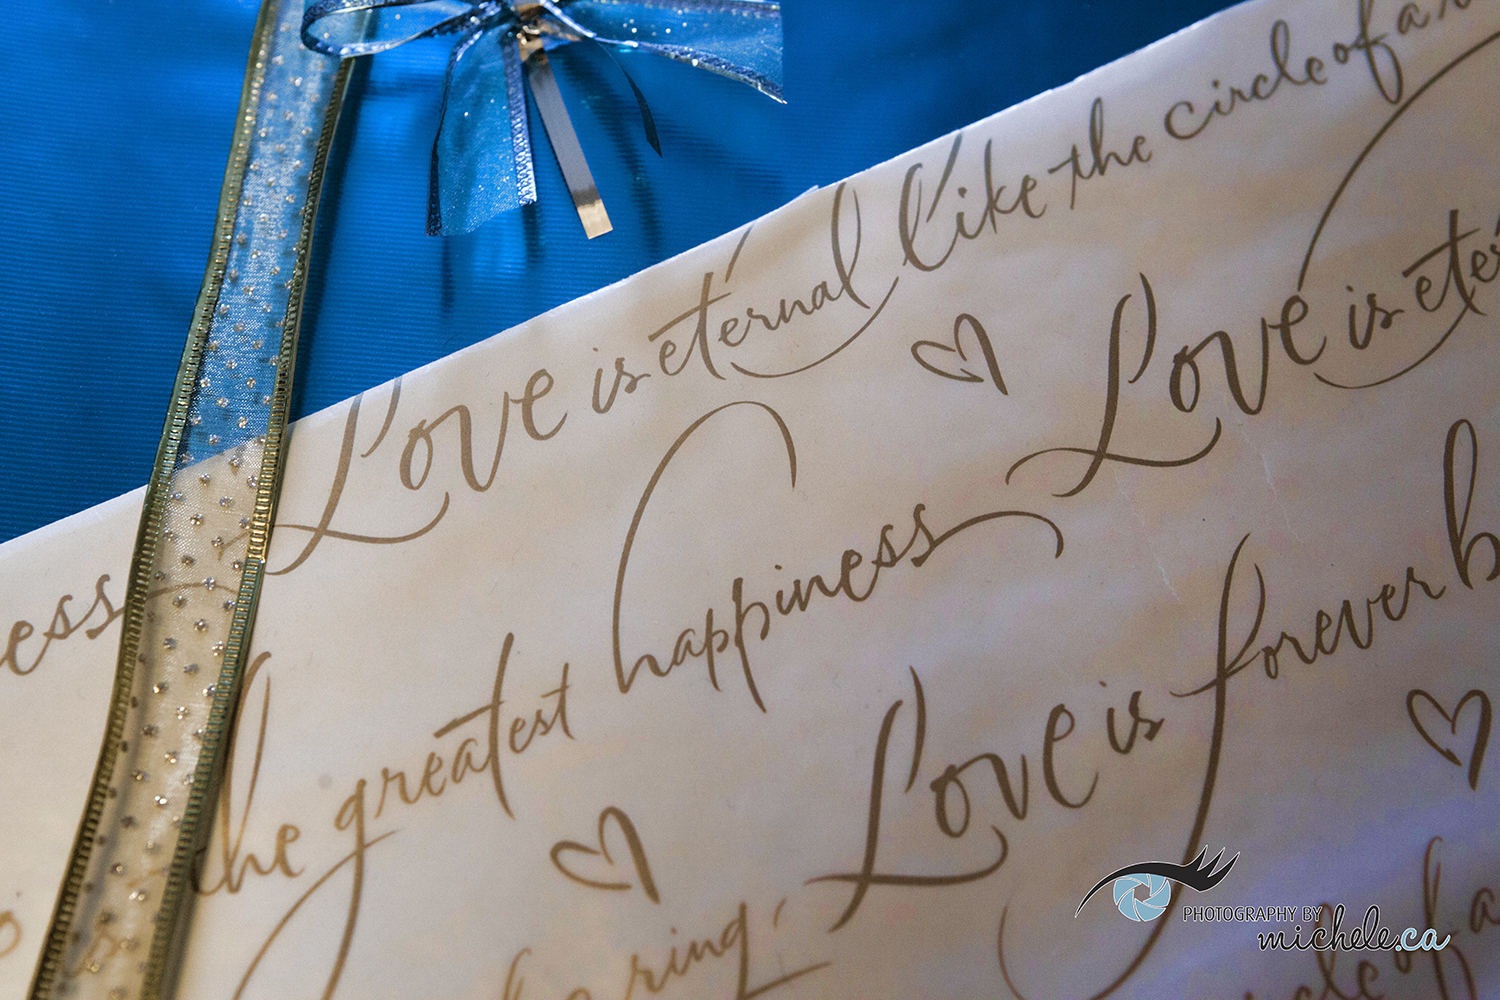 Love is eternal like the circle of a
Love is
happiness
ess
the greatest
Love is forever
ring,
of a
PHOTOGRAPHY BY
michele.ca